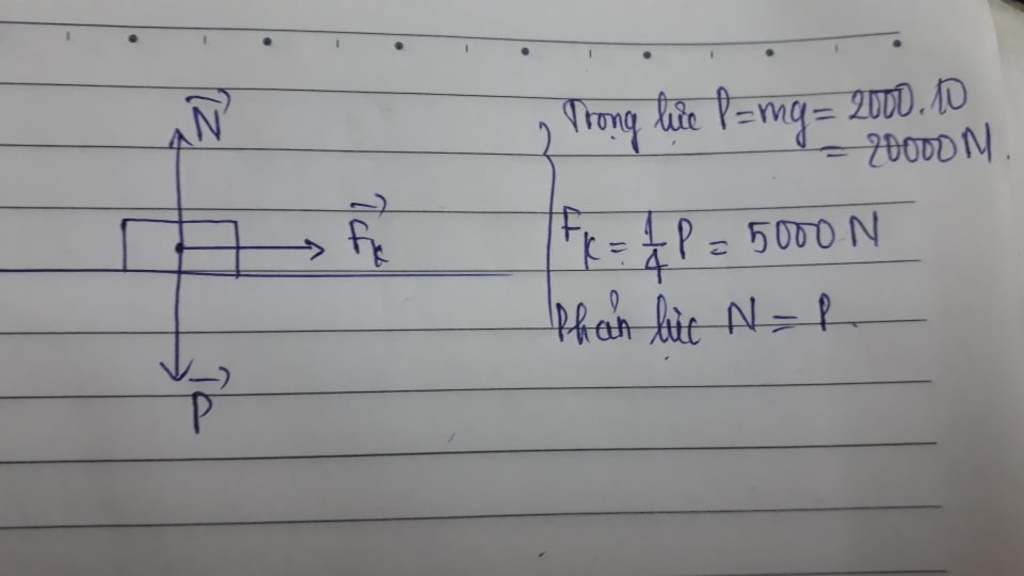 N
F_k
P
Trọng lực P = mg = 2000.10
= 20000 N.
F_k = 1/4 P = 5000 N
Phản lực N = P.